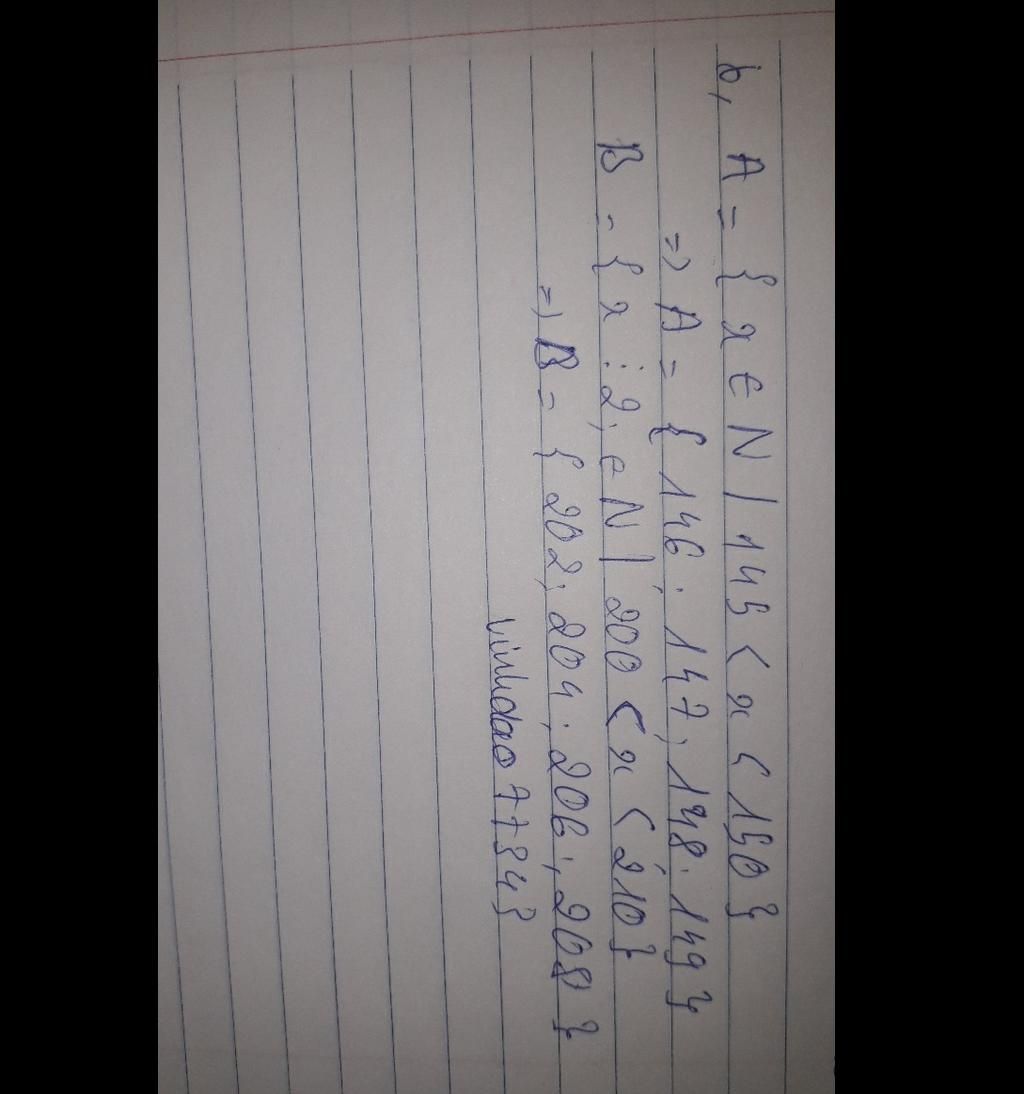 b, A = { x ∈ N | 145 < x < 150 }
=> A = { 146; 147; 148; 149 }
B = { x ⋮ 2; ∈ N | 200 < x < 210 }
=> B = { 202; 204; 206; 208 }
vinhdao7734}